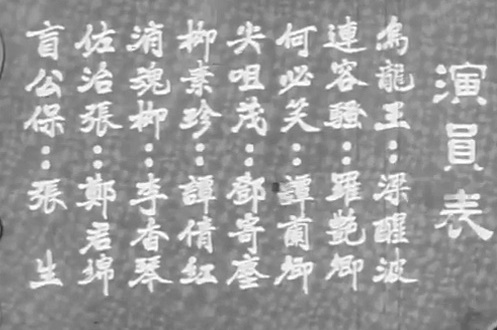 演員表
烏龍王：梁醒波
連容騷：羅艷卿
何必笑：譚蘭卿
尖咀茂：鄧寄塵
柳葉珍：譚倩紅
消魂柳：李香琴
佐治張：鄭君綿
盲公保：張生